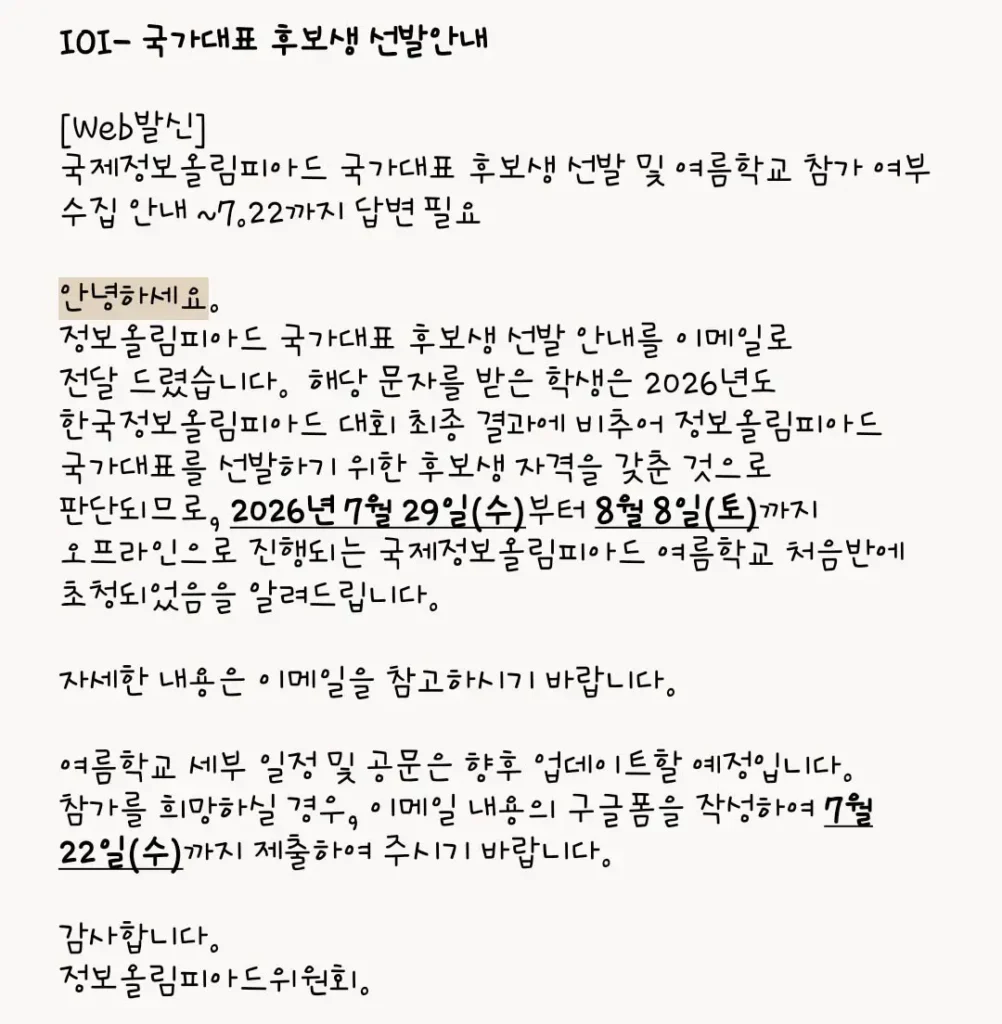 IOI- 국가대표 후보생 선발안내
[Web발신]
국제정보올림피아드 국가대표 후보생 선발 및 여름학교 참가 여부
수집 안내 ~7.22까지 답변 필요
안녕하세요.
정보올림피아드 국가대표 후보생 선발 안내를 이메일로
전달 드렸습니다. 해당 문자를 받은 학생은 2026년도
한국정보올림피아드 대회 최종 결과에 비추어 정보올림피아드
국가대표를 선발하기 위한 후보생 자격을 갖춘 것으로
판단되므로, 2026년 7월 29일(수)부터 8월 8일(토)까지
오프라인으로 진행되는 국제정보올림피아드 여름학교 처음반에
초청되었음을 알려드립니다.
자세한 내용은 이메일을 참고하시기 바랍니다.
여름학교 세부 일정 및 공문은 향후 업데이트할 예정입니다.
참가를 희망하실 경우, 이메일 내용의 구글폼을 작성하여 7월
22일(수)까지 제출하여 주시기 바랍니다.
감사합니다.
정보올림피아드위원회.